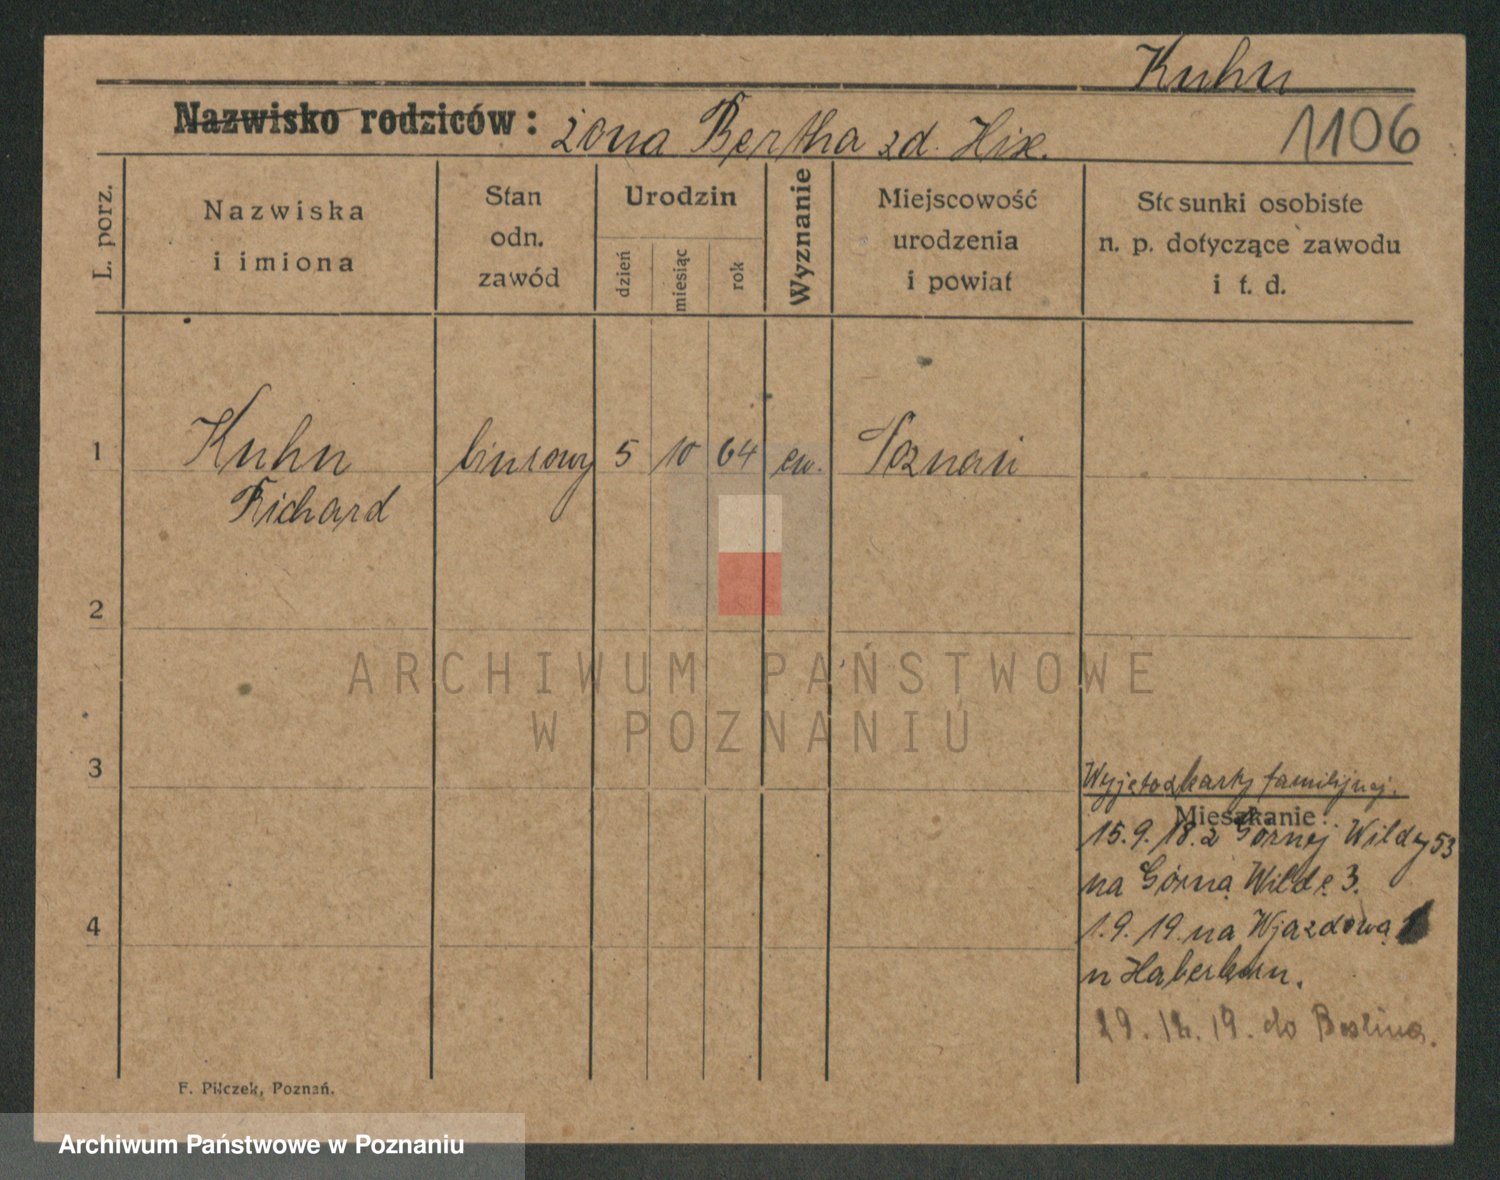 Kuhn
Nazwisko rodziców: żona Bertha zd. Hix.
1106
L. porz.
Nazwiska
i imiona
Stan
odn.
zawód
Urodzin
dzień
miesiąc
rok
Wyznanie
Miejscowość
urodzenia
i powiat
Stosunki osobiste
n. p. dotyczące zawodu
i t. d.
1
Kuhn
Richard
biurowy
5
10
64
ew.
Poznań
2
3
4
Wyjęto z karty familijnej.
Mieszkanie:
15.9.18. z Górnej Wildy 53
na Górną Wildę 3.
1.9.19. na Wjazdową
u Haberkorn.
19. do Berlina.
F. Pilczek, Poznań.
ARCHIWUM PAŃSTWOWE
W POZNANIU
Archiwum Państwowe w Poznaniu